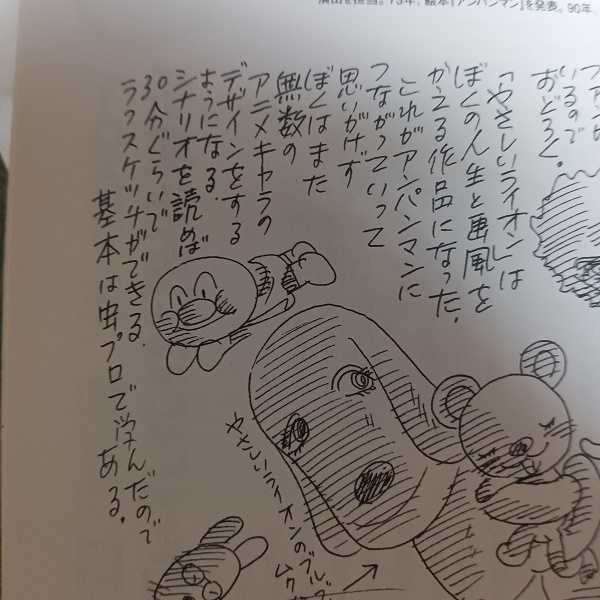 演出を担当。73年、絵本『アンパンマン』を発表。90年、
いるので
おどろく。
「やさしいライオン」は
ぼくの人生と画風を
かえる作品になった。
これがアンパンマンに
つながっていって
思いがけず
ぼくはまた
無数の
アニメキャラの
デザインをする
ようになる。
シナリオを読めば
30分ぐらいで
ラフスケッチができる。
基本は虫プロで学んだので
ある。
やさしいライオンの
ムク